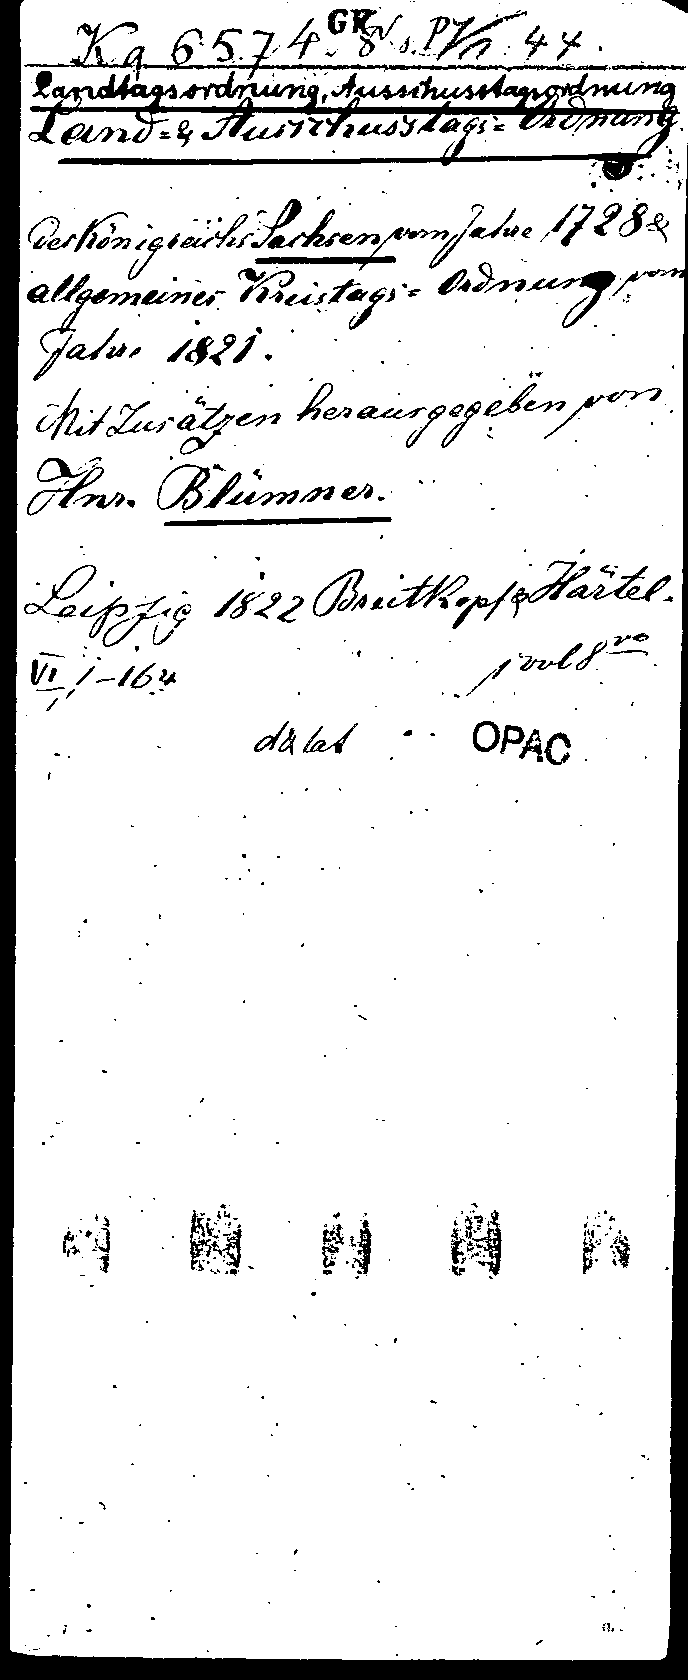 GR
Kq 6574 8°
Landtagsordnung, Ausschusstagsordnung
Land= & Ausschusstags= Ordnung
des Königreichs Sachsen vom Jahre 1728 &
allgemeines Kreistags= Ordnung vom
Jahre 1821.
Mit Zusätzen herausgegeben von
Hnr. Blümner.
Leipzig 1822 Breitkopf & Härtel.
VI, 1-164
1 vol 8vo
OPAC